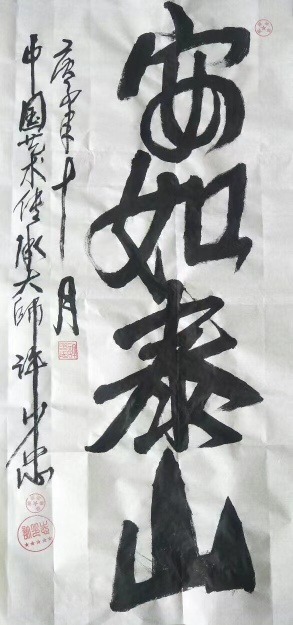 安如泰山
庚子年十月
中国艺术传承大师 许少忠